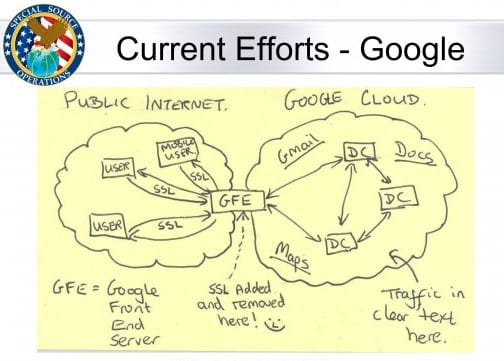 SPECIAL SOURCE
OPERATIONS
Current Efforts - Google
PUBLIC INTERNET.
GOOGLE CLOUD.
MOBILE
USER
USER
SSL
SSL
USER
SSL
GFE
Gmail
DC
Docs
DC
DC
Maps
GFE = Google
Front
End
Server
SSL Added
and removed
here!
Traffic in
clear text
here.